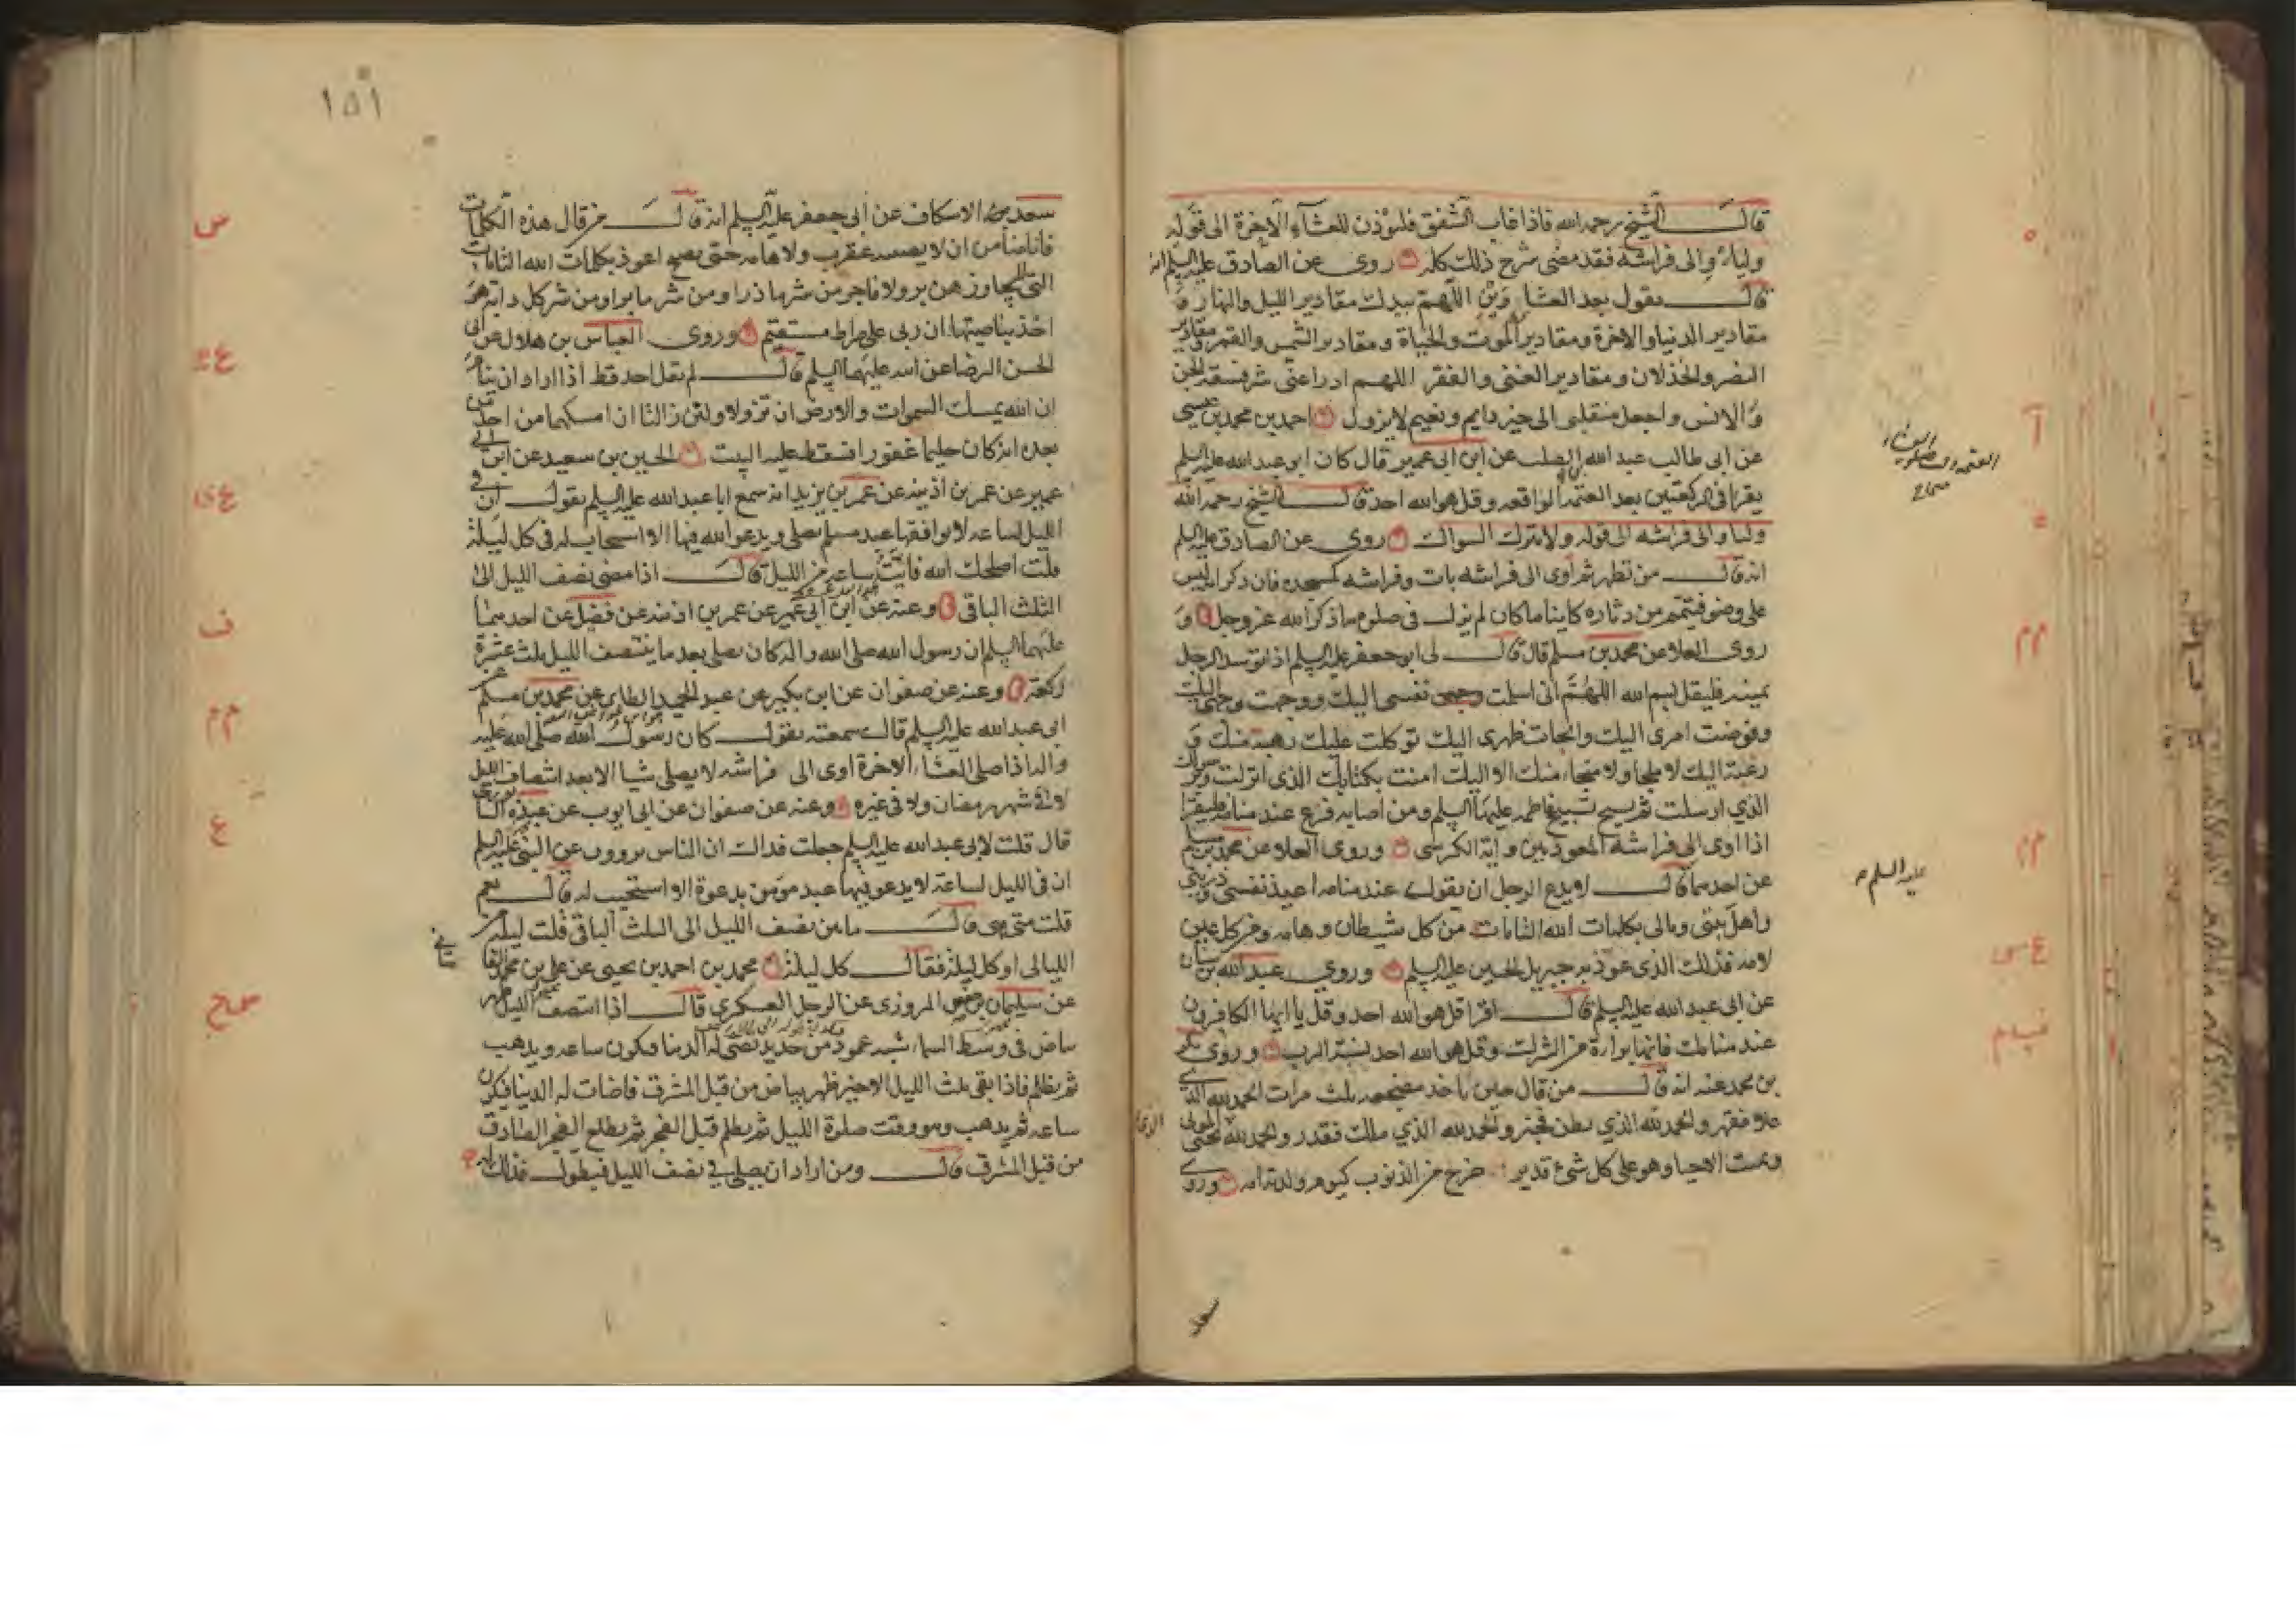 قال الشيخ رحمه الله فاذا غاب الشفق فليؤذن للعشاء الاخرة الى قوله
وليأو الى فراشه فقد مضى شرح ذلك كله روى عن الصادق عليه السلم انه
قال يقول بعد العشاءين اللهم بيدك مقادير الليل والنهار و
مقادير الدنيا والاخرة ومقادير الموت والحياة ومقادير الشمس والقمر ومقادير
النصر والخذلان ومقادير الغنى والفقر اللهم ادرا عنى شر فسقة الجن
والانس واجعل منقلبى الى خير دايم ونعيم لا يزول احمد بن محمد بن عيسى
عن ابى طالب عبد الله بن الصلت عن ابن ابى عمير قال كان ابو عبد الله عليه السلم
يقرا فى الركعتين بعد العتمة الواقعه وقل هو الله احد قال الشيخ رحمه الله
وليأو الى فراشه الى قوله ولا يترك السواك روى عن الصادق عليه السلم
انه قال من تطهر ثم آوى الى فراشه بات وفراشه كمسجده فان ذكر انه ليس
على وضو فيتمم من دثاره كاينا ما كان لم يزل فى صلوة ما ذكر الله عز وجل و
روى العلا عن محمد بن مسلم قال قال لى ابو جعفر عليه السلم اذا توسد الرجل
يمينه فليقل بسم الله اللهم انى اسلمت نفسى اليك ووجهت وجهى اليك
وفوضت امرى اليك والجات ظهرى اليك توكلت عليك رهبة منك و
رغبة اليك لا ملجا ولا منجا منك الا اليك امنت بكتابك الذى انزلت وبرسولك
الذي ارسلت ثم يسبح تسبيح فاطمه عليها السلم ومن اصابه فزع عند منامه فليقرا
اذا اوى الى فراشه المعوذتين واية الكرسى وروى العلا عن محمد بن مسلم
عن احدهما قال لا يدع الرجل ان يقول عند منامه اعيذ نفسى وذريتى
واهل بيتى ومالى بكلمات الله التامات من كل شيطان وهامه ومن كل عين
لامه فذلك الذى عوذ به جبريل الحسين عليه السلم وروى عبد الله بن سنان
عن ابى عبد الله عليه السلم قال اقرا قل هو الله احد وقل يا ايها الكافرون
عند منامك فانها براءة من الشرك وقل هو الله احد نسبة الرب وروى بكر
بن محمد عنه انه قال من قال حين ياخذ مضجعه ثلث مرات الحمد لله الذي
علا فقهر والحمد لله الذي بطن فخبر والحمد لله الذي ملك فقدر والحمد لله الذى يحيى الموتى
ويميت الاحيا وهو على كل شئ قدير خرج من الذنوب كيوم ولدته امه وروى
سعد
عليه السلم
١٥١
سعد الاسكاف عن ابى جعفر عليه السلم انه قال من قال هذه الكلمات
فانا ضامن ان لا يصيبه عقرب ولا هامه حتى يصبح اعوذ بكلمات الله التامات
التى لا يجاوزهن بر ولا فاجر من شر ما ذرا ومن شر ما برا ومن شر كل دابة هو
اخذ بناصيتها ان ربى على صراط مستقيم وروى العباس بن هلال عن ابى
الحسن الرضا عن ابيه عليهما السلم قال لم يقل احد قط اذا اراد ان ينام
ان الله يمسك السموات والارض ان تزولا ولئن زالتا ان امسكهما من احد من
بعده انه كان حليما غفورا فسقط عليه البيت الحسين بن سعيد عن ابن ابى
عمير عن عمر بن اذينه عن عمر بن يزيد انه سمع ابا عبد الله عليه السلم يقول ان فى
الليل لساعه لا يوافقها عبد مسلم يصلى ويدعو الله فيها الا استجاب له فى كل ليلة
قلت اصلحك الله فايت ساعه من الليل قال اذا مضى نصف الليل الى
الثلث الباقى وعنه عن ابن ابى عمير عن عمر بن اذينه عن فضيل عن احدهما
عليهما السلم ان رسول الله صلى الله واله كان يصلى بعد ما ينتصف الليل ثلث عشرة
ركعة وعنه عن صفوان عن ابن بكير عن عبد الحميد الطاى عن محمد بن مسلم عن
ابى عبد الله عليه السلم قال سمعته يقول كان رسول الله صلى الله عليه
واله اذا صلى العشاء الاخرة اوى الى فراشه لا يصلى شيا الا بعد انتصاف الليل
لا فى شهر رمضان ولا فى غيره وعنه عن صفوان عن ابى ايوب عن عبده النيسابورى
قال قلت لابى عبد الله عليه السلم جعلت فداك ان الناس يروون عن النبى عليه السلم
ان فى الليل لساعة لا يدعو فيها عبد مؤمن بدعوة الا استجيب له قال نعم
قلت متى هى قال ما بين نصف الليل الى الثلث الباقى قلت ليلة من
الليالى او كل ليلة فقال كل ليلة محمد بن احمد بن يحيى عن على بن محمد القا
سانى
عن سليمان بن حفص المروزى عن الرجل العسكرى قال اذا انتصف الليل ظهر
بياض فى وسط السماء شبه عمود من حديد تضى له الدنيا فيكون ساعه ويذهب
ثم يظلم فاذا بقى ثلث الليل الاخير ظهر بياض من قبل المشرق فاضات له الدنيا فيكون
ساعه ثم يذهب وهو وقت صلوة الليل ثم يظلم قبل الفجر ثم يطلع الفجر الصادق
من قبل المشرق قال ومن اراد ان يصلى فى نصف الليل فيطول فذلك له